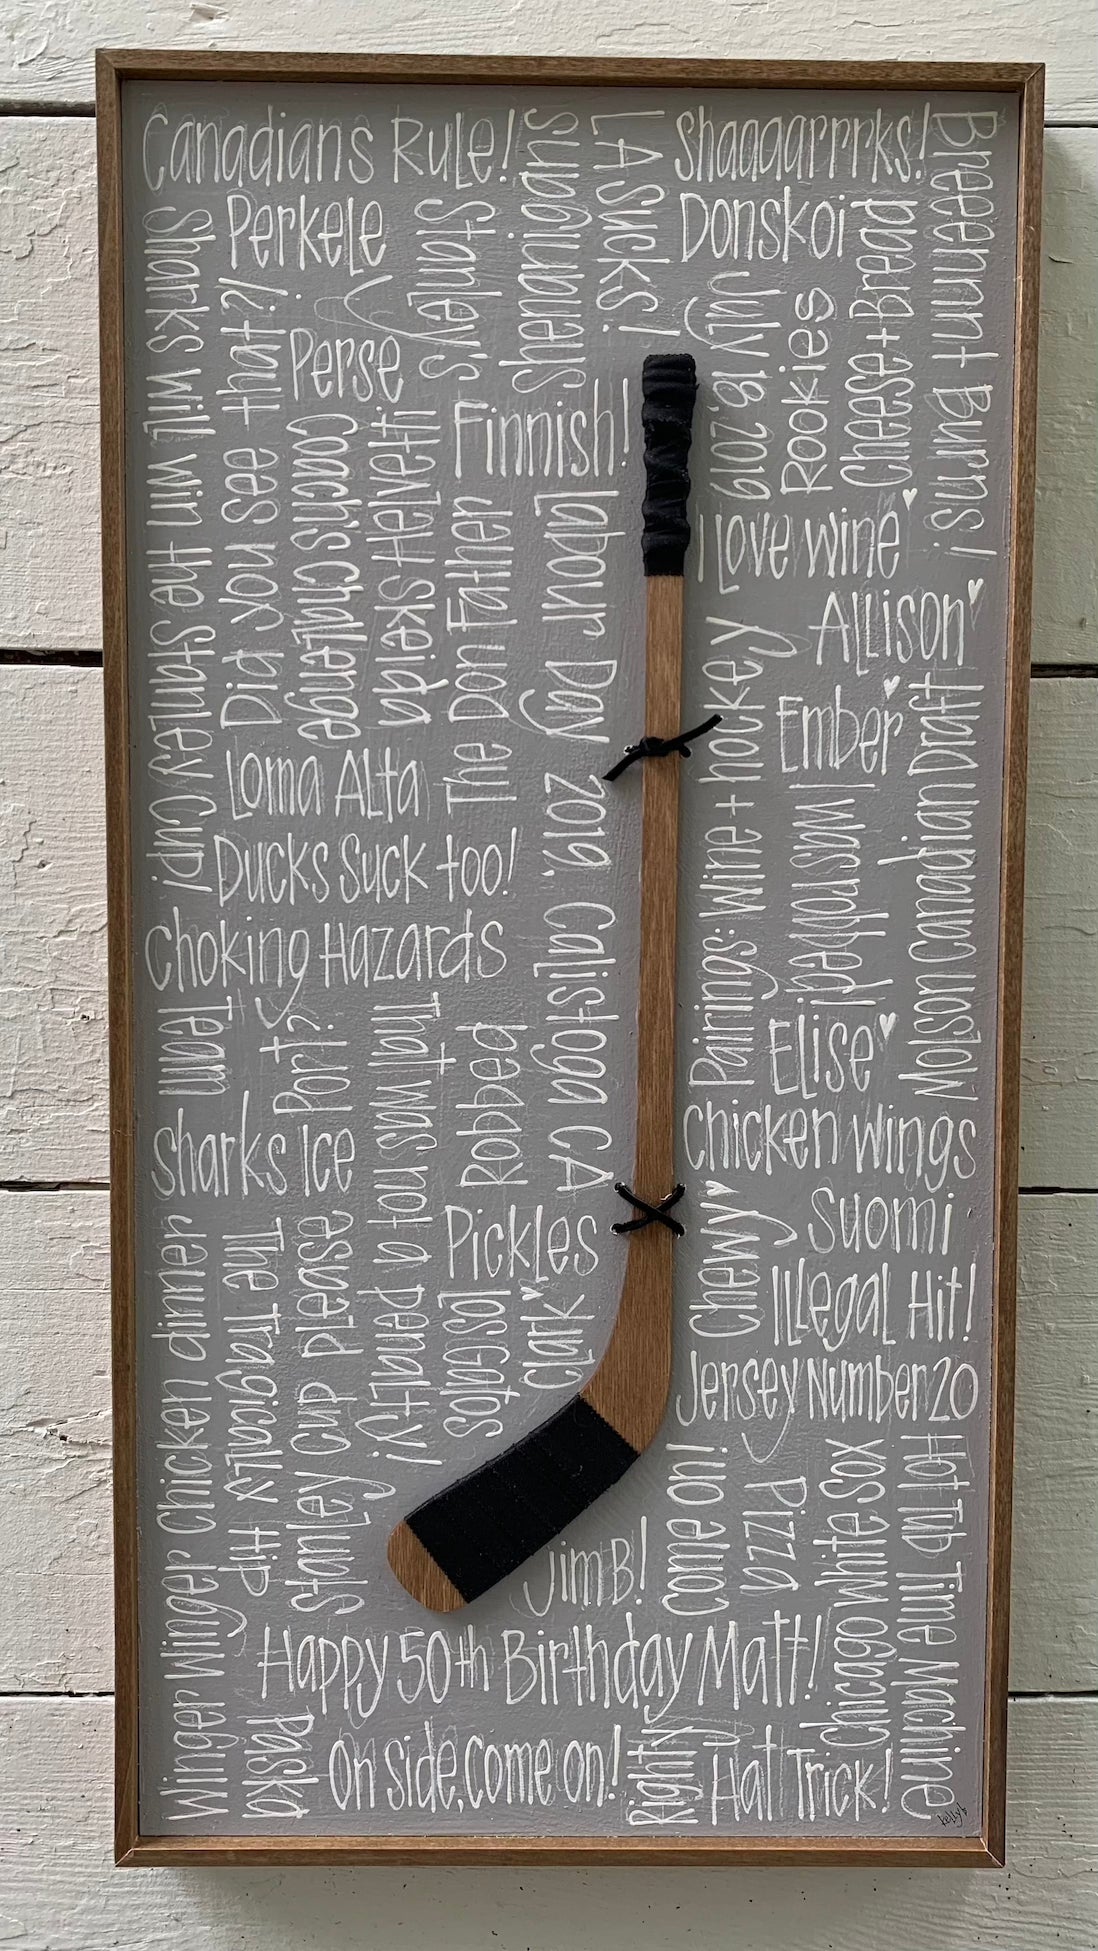 Canadians Rule!
Shenanigans
LA Sucks!
Shaaaarrrks!
Breeennnt Burns!
Sharks will win the Stanley Cup!
Perkele
Stanley's
Donskoi
Cheese + Bread
Did you see that?!
Perse
July 18, 2019
Rookies
Coach's Challenge
Apples Helvetti
Finnish!
The Don Father
Labour Day 2019, Calistoga CA
I Love wine
Allison
Pairings: Wine + hockey
Ember
Molson Canadian Draft
Loma Alta
I was robbed!
Ducks Suck too!
Choking Hazards
Team
Sharks Ice
Port?
That was not a penalty!
Robbed
Elise
Chicken Wings
Pickles
Chewy
Suomi
Winger Winger Chicken dinner
The Tragically Hip
Stanley Cup Please
Los Gatos
Clark
Illegal Hit!
Jersey Number 20
Come on!
Pizza
Chicago White Sox
Hot Tub Time Machine
Jim B!
Happy 50th Birthday Matt!
Paska
On side, come on!
Righty
Hat Trick!
Kellyb